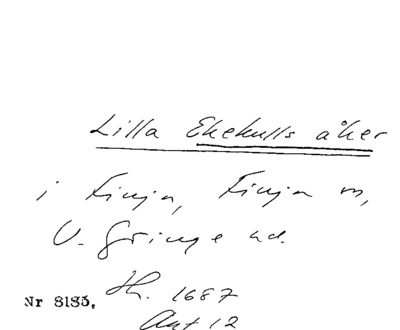 Lilla Ekekulls åker
i Finja, Finja sn,
V. Göinge hd.
Nr 8185. Hh. 1687
Akt 12